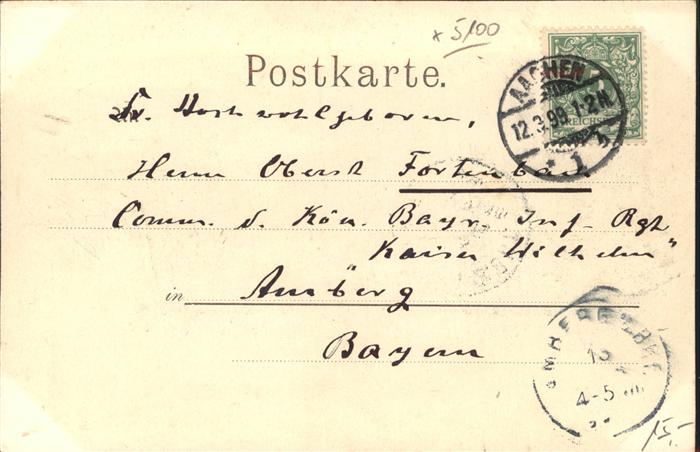 x 5/00
Postkarte.
AACHEN
12.3.99. 1-2 N.
1 h
REICHSP
Sr. Hochwohlgeboren,
Herrn Oberst Fortenbach
Comm. d. Kön. Bayr. Inf. Rgt
"Kaiser Wilhelm"
in Amberg
Bayern
AMBERG
13
4-5
15,-